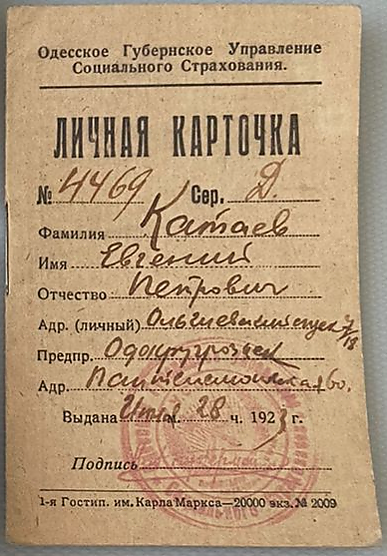 Одесское Губернское Управление
Социального Страхования.
ЛИЧНАЯ КАРТОЧКА
№ 4469 Сер. Д
Фамилия Катаев
Имя Евгений
Отчество Петрович
Адр. (личный) Ольгиевский спуск 7/18
Предпр.
Адр. Пантелеймоновская
Выдана 28 ч. 1923 г.
Подпись
1-я Гостип. им. Карла Маркса—20000 экз. № 2009